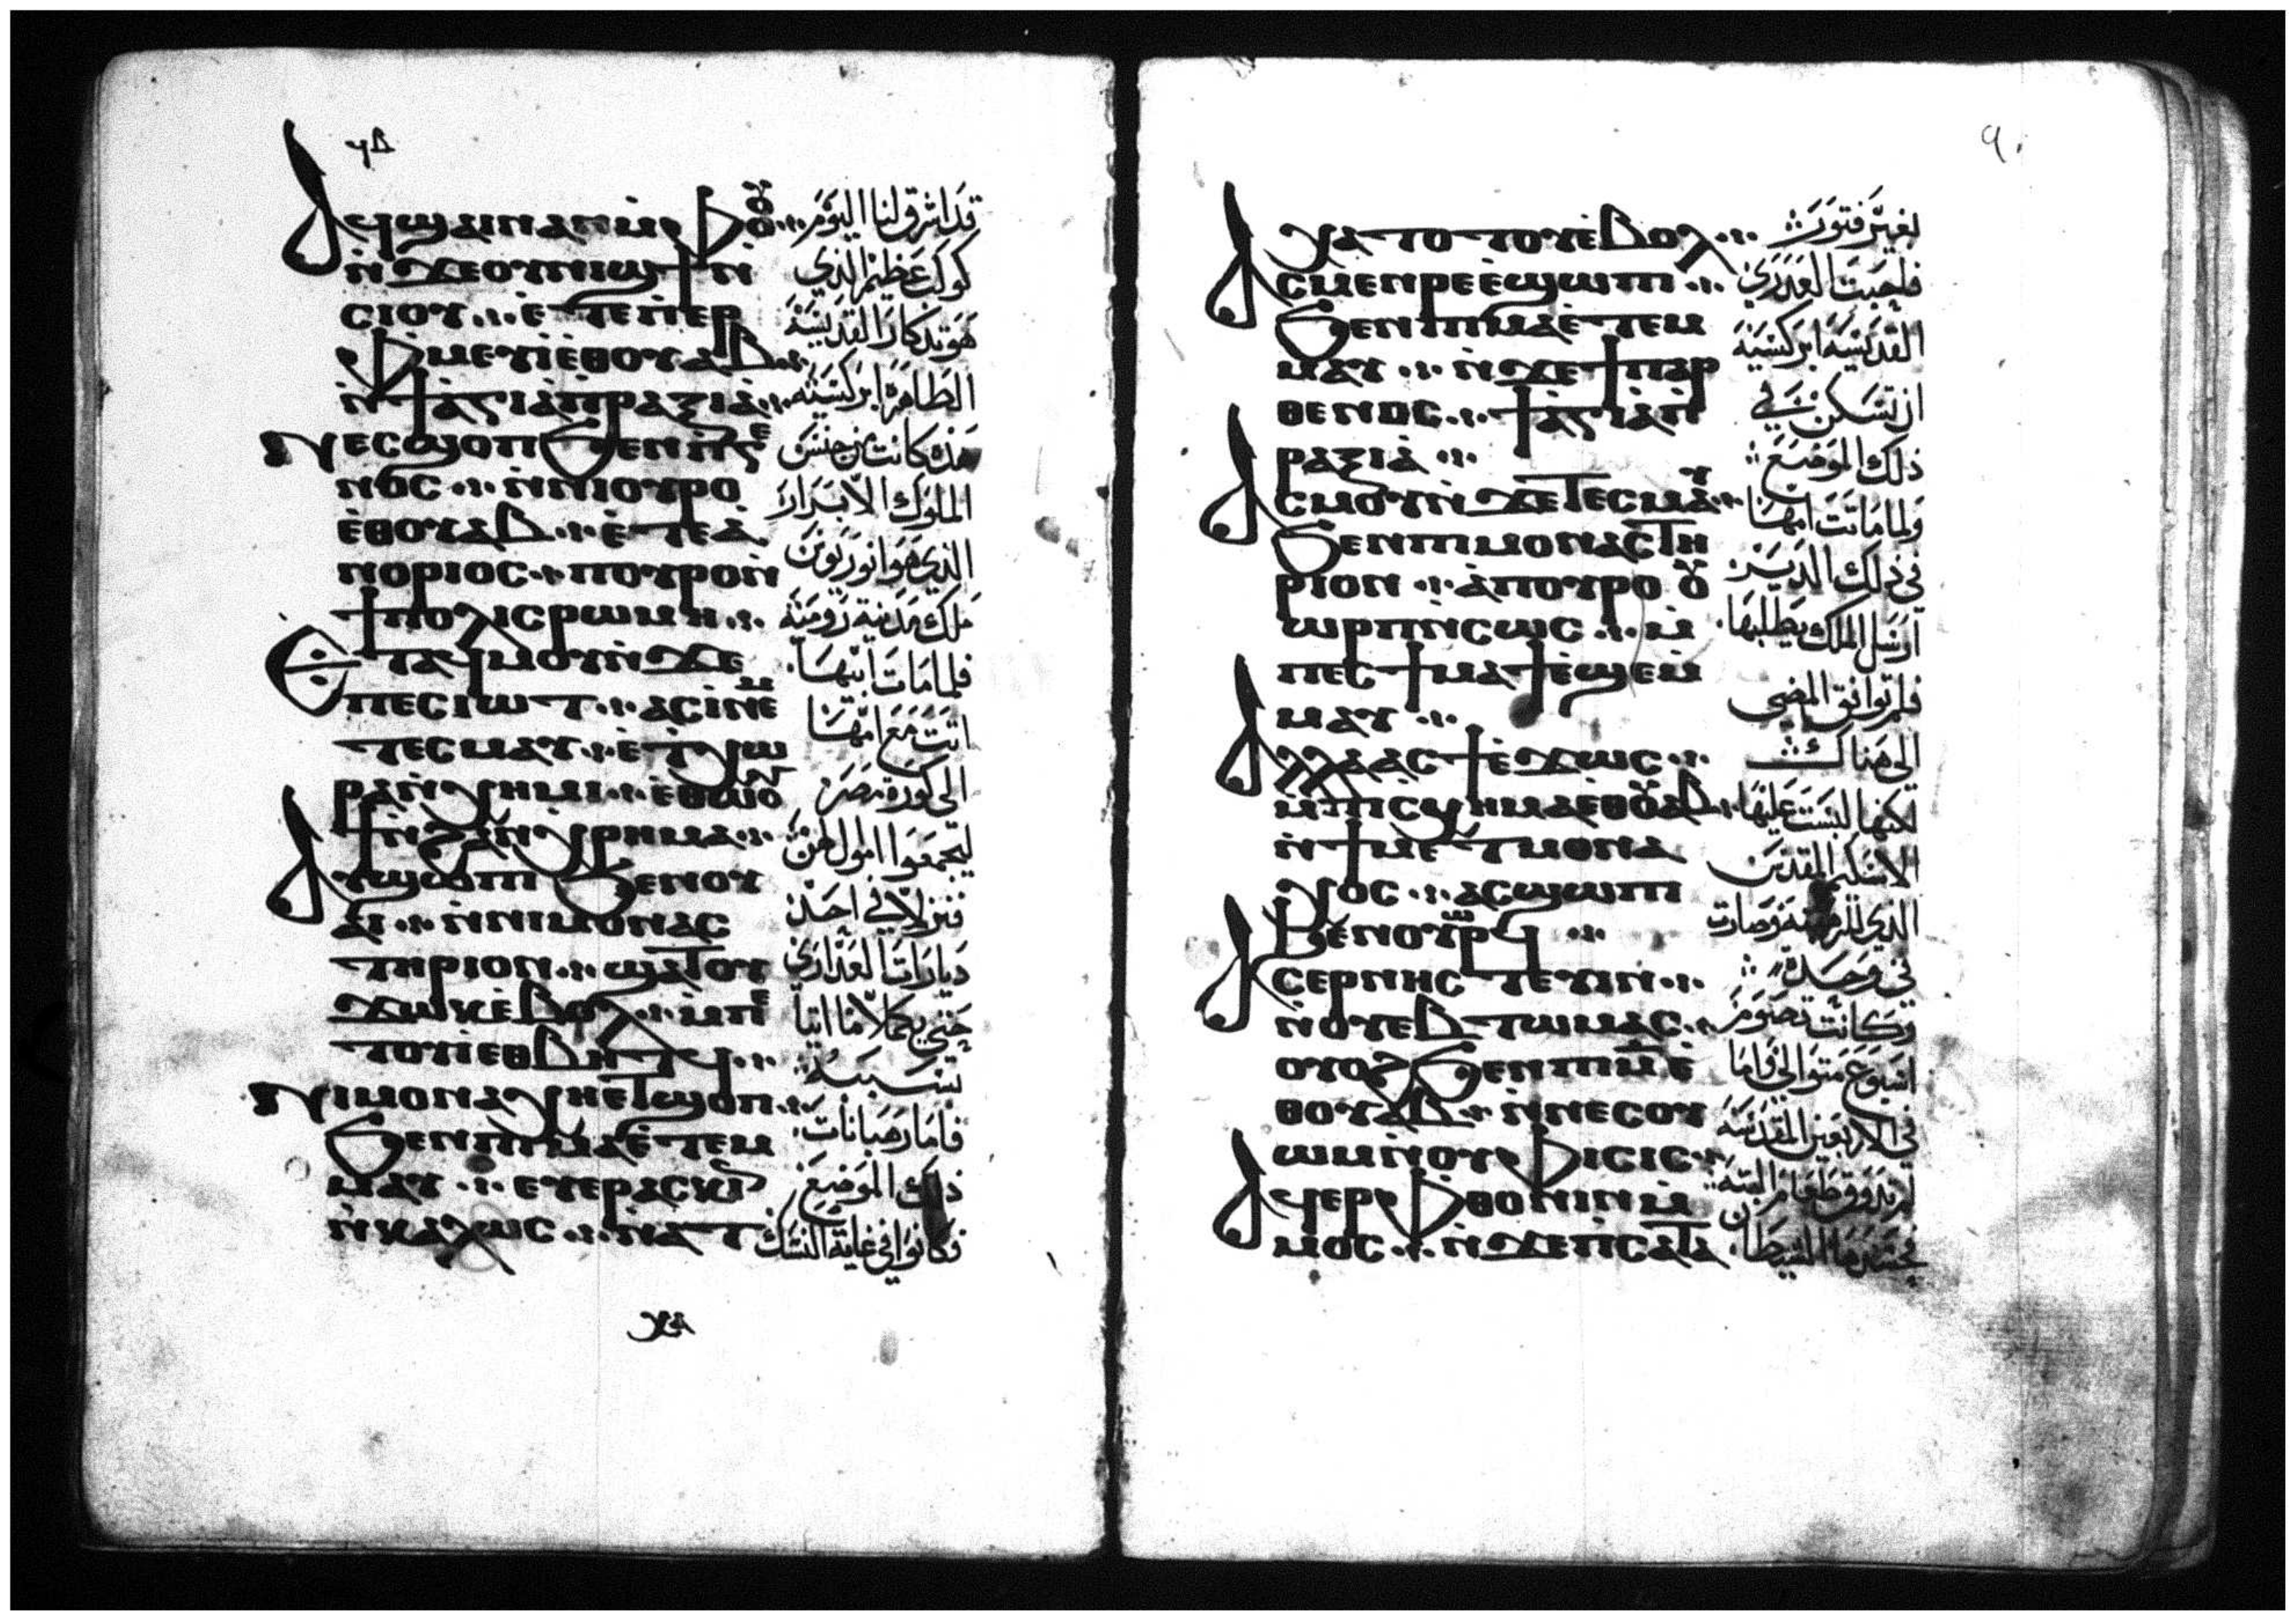 ϥⲃ
Ⲁϥϣⲁⲓ ⲛⲁⲛ ⲙ̀ⲫⲟⲟⲩ
ⲛ̀ϫⲉ ⲟⲩⲛⲓϣϯ ⲛ̀
ⲥⲓⲟⲩ ⲉ̀ⲧⲉ ⲡ̀ⲉⲣ
ⲫⲙⲉⲩⲓ ⲉ̀ⲑⲟⲩⲁⲃ
ⲛ̀ϯⲁ̀ⲅⲓⲁ ⲁ̀ⲡⲣⲁⲝⲓⲁ̀
Ⲛⲉⲥϣⲟⲡ ϧⲉⲛ ⲡ̀ⲅⲉ
ⲛⲟⲥ ⲛ̀ⲛⲓⲟⲩⲣⲟ
ⲉ̀ⲑⲟⲩⲁⲃ ⲉ̀ⲧⲉ ⲁ̀
ⲛⲟⲣⲓⲟⲥ ⲡⲟⲩⲣⲟ ⲛ̀
ϯⲡⲟⲗⲓⲥ ⲣⲱⲙⲏ
Ⲉⲧⲁϥⲙⲟⲩ ⲛ̀ϫⲉ
ⲡⲉⲥⲓⲱⲧ ⲁⲥⲓ̀ ⲛⲉⲙ
ⲧⲉⲥⲙⲁⲩ ⲉ̀ϯⲭⲱ
ⲣⲁ ⲛ̀ⲭⲏⲙⲓ ⲉ̀ⲑⲱⲟⲩ
ϯ ⲛ̀ϩⲁⲛⲭⲣⲏⲙⲁ
Ⲁⲩϣⲱⲡⲓ ϧⲉⲛ ⲟⲩ
ⲁⲓ ⲛ̀ⲛⲓⲙⲟⲛⲁⲥ
ⲧⲏⲣⲓⲟⲛ ϣⲁⲧⲟⲩ
ϫⲱⲕ ⲉ̀ⲃⲟⲗ ⲙ̀ⲡⲉ
ⲧⲟⲩⲓ̀ ⲉⲑⲃⲏⲧϥ
Ⲛⲓⲙⲟⲛⲁⲭⲏ ⲉⲧϣⲟⲡ
ϧⲉⲛ ⲡⲓⲙⲁ ⲉ̀ⲧⲉⲙ
ⲙⲁⲩ ⲉⲩⲉⲣⲁⲥⲕⲓⲛ
ⲛ̀ⲕⲁⲗⲱⲥ ⲛⲁⲧ
قد اشرق لنا اليوم
كوكب عظيم الذي
هو تدكار القديسة
الطاهرة ابركسية
هذه كانت من جنس
الملوك الابرار
الذي هو انوريوس
ملك مدينة رومية
فلما مات ابيها
اتت مع امها
الى كورة مصر
ليجمعوا اموالهن
فنزلا في احد
ديارات العذارى
حتى يكملا ما اتيا
بسببه
فاما رهبانات
ذلك الموضع
فكانوا في غاية النسك
ϥ
Ⲭⲁⲧⲟⲧⲟⲩ ⲉ̀ⲃⲟⲗ
Ⲁⲥⲙⲉⲛⲣⲉ ⲉ̀ϣⲱⲡⲓ
ϧⲉⲛ ⲡⲓⲙⲁ ⲉ̀ⲧⲉⲙ
ⲙⲁⲩ ⲛ̀ϫⲉ ϯⲡⲁⲣ
ⲑⲉⲛⲟⲥ ϯⲁ̀ⲅⲓⲁ ⲁ̀ⲡ
ⲣⲁⲝⲓⲁ̀
Ⲁⲥⲙⲟⲩ ⲛ̀ϫⲉ ⲧⲉⲥⲙⲁⲩ
ϧⲉⲛ ⲡⲓⲙⲟⲛⲁⲥⲧⲏ
ⲣⲓⲟⲛ ⲁ̀ ⲡⲟⲩⲣⲟ ⲟⲩ
ⲱⲣⲡ ⲛ̀ⲥⲱⲥ ⲙ̀
ⲡⲉⲥϯⲙⲁϯ ⲉ̀ϣⲉ ⲙ̀
ⲙⲁⲩ
Ⲁⲗⲗⲁ ⲁⲥϯ ⲉ̀ϫⲱⲥ
ⲙ̀ⲡⲓⲥⲭⲏⲙⲁ ⲉⲑⲟⲩⲁⲃ
ⲛ̀ϯⲙⲉⲧⲙⲟⲛⲁ
ⲭⲟⲥ ⲁⲥϣⲱⲡⲓ
ϧⲉⲛ ⲟⲩⲙⲉⲣⲓ
Ⲁⲥⲉⲣⲛⲏⲥⲧⲉⲩⲓⲛ
ⲛ̀ⲟⲩⲉⲃⲧⲱⲙⲁⲥ
ⲟⲩⲟϩ ϧⲉⲛ ⲡⲓⲙ̅ ⲉ̀
ⲑⲟⲩⲁⲃ ⲛ̀ⲛⲉⲥⲟⲩ
ⲱⲙ ⲛ̀ⲟⲩⲫⲓⲥⲓⲥ
Ⲁϥⲉⲣⲫⲑⲟⲛⲓⲛ ⲙ̀
ⲙⲟⲥ ⲛ̀ϫⲉ ⲡⲥⲁⲧⲁ
بغير فتور
فاحبت العذرى
القديسة ابركسية
ان تسكن في
ذلك الموضع
ولما ماتت امها
في ذلك الدير
ارسل الملك يطلبها
فلم توافق المضي
الى هناك
لكنها لبست عليها
الاسكيم المقدس
الذي للرهبنة وصارت
في وحدة
وكانت تصوم
اسبوع متوالي واما
في الاربعين المقدسة
لم تدوق طعام البتة
فحسدها الشيطان